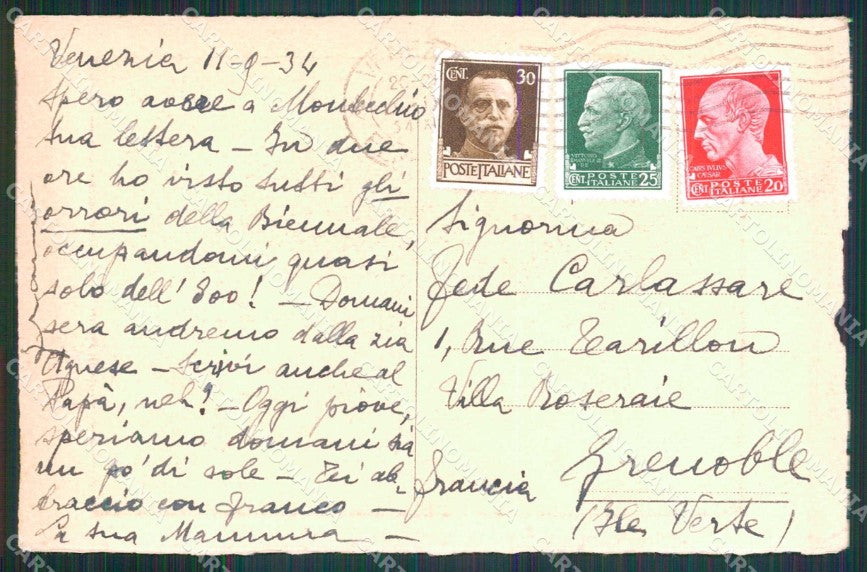 Venezia 11-9-34
Spero avere a Montecchio
tua lettera - In due
ore ho visto tutti gli
orrori della Biennale,
occupandomi quasi
solo dell'800! - Domani
sera andremo dalla zia
Agnese - Scrivi anche al
Papà, neh! - Oggi piove,
speriamo domani sia
un po' di sole - Ti ab-
braccio con Franco -
La tua Mamma -
Franco
CENT. 30
POSTE ITALIANE
VITTORIO EMANUELE III RE
POSTE
CENT. ITALIANE 25
CAIVS IVLIVS
CAESAR
POSTE
CENT. ITALIANE 20
Signorina
Fede Carlassare
1, Rue Tarillon
Villa Roseraie
Grenoble
Francia
(Ile Verte)
CARTOLINOMANIA